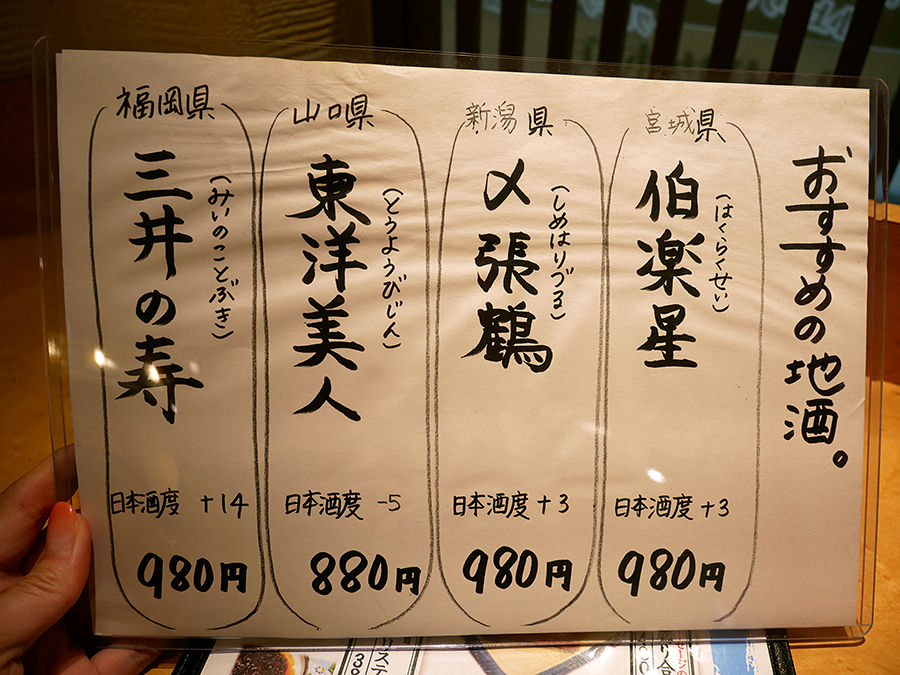 おすすめの地酒。
宮城県
伯楽星
(はくらくせい)
日本酒度 +3
980円
新潟県
〆張鶴
(しめはりづる)
日本酒度 +3
980円
山口県
東洋美人
(とうようびじん)
日本酒度 -5
880円
福岡県
三井の寿
(みいのことぶき)
日本酒度 +14
980円